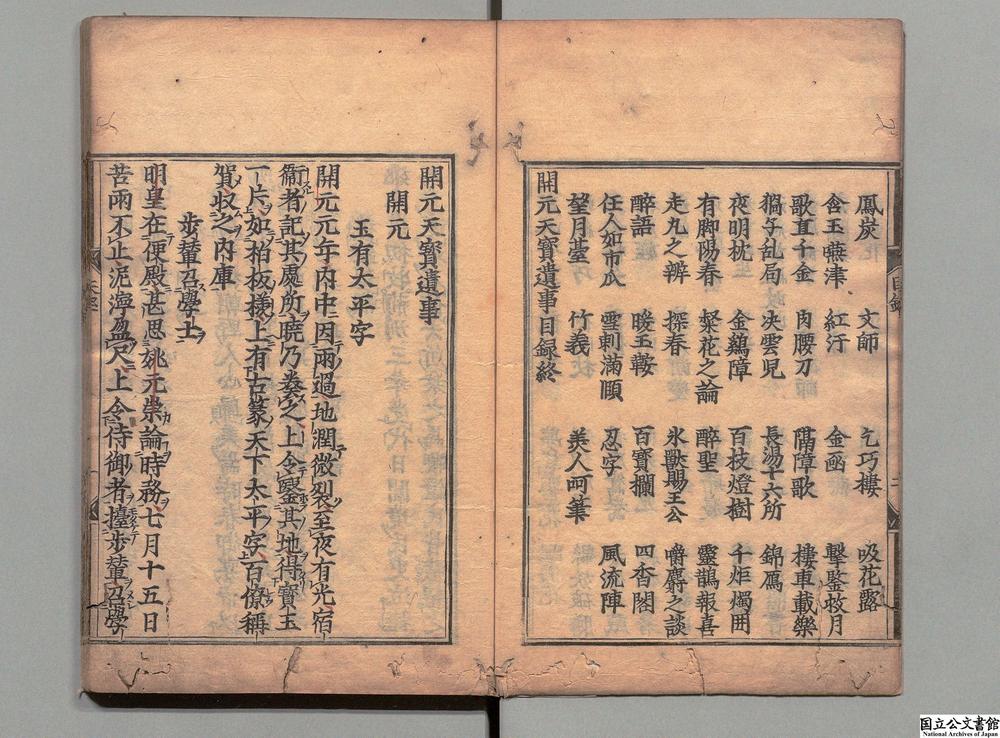 鳳炭　文師　乞巧樓　吸花露
含玉嚥津　紅汗　金函　擊鑒救月
歌直千金　肉腰刀　隔障歌　樓車載樂
猧子乱局　决雲児　長湯十六所　錦鴈
夜明枕　金鷄障　百枝燈樹　千炬燭囲
有脚陽春　粲花之論　醉聖　靈鵲報喜
走丸之辨　探春　氷獸賜王公　嚼麝之談
醉語　暖玉鞍　百寶欄　四香閣
任人如市瓜　雪刺滿頤　忍字　風流陣
望月臺　竹義　美人呵筆
開元天寶遺事目録終
目録
二
開元天寶遺事
開元
玉有太平字
開元元年内中因雨過地潤微裂至夜有光宿
衛者記其處所曉乃奏之上令鑿其地得寶玉
一片如柏板樣上有古篆天下太平字百僚稱
賀收之内庫
步輦召學士
明皇在便殿甚思姚元崇論時務七月十五日
苦雨不止泥濘盈尺上令侍御者擡步輦召學
国立公文書館
National Archives of Japan